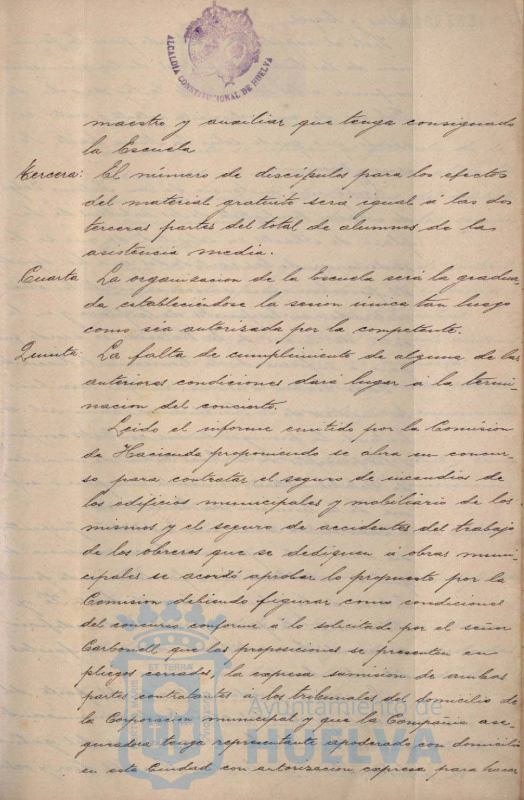 ALCALDÍA CONSTITUCIONAL DE HUELVA
maestro y auxiliar que tenga consignado
la Escuela
Tercera: El número de discípulos para los efectos
del material gratuito será igual á las dos
terceras partes del total de alumnos de las
asistencia media.
Cuarta La organizacion de la Escuela será la gradua-
da estableciéndose la sesion única tan luego
como sea autorizada por la competente.
Quinta: La falta de cumplimiento de alguna de las
anteriores condiciones dará lugar á la termi-
nacion del concierto.
Leido el informe emitido por la Comision
de Hacienda proponiendo se abra un concur-
so para contratar el seguro de incendios de
los edificios municipales y mobiliario de los
mismos y el seguro de accidentes del trabajo
de los obreros que se dediquen á obras muni-
cipales se acordó aprobar lo propuesto por la
Comision debiendo figurar como condiciones
del concurso conforme á lo solicitado por el señor
Carbonell que las proposiciones se presenten en
pliego cerrados, la expresa sumision de ambas
partes contratantes á los tribunales del domicilio de
la Corporacion municipal y que la Compañia ase-
guradora tenga representante apoderado con domicilio
en esta Ciudad con autorizacion expresa para hacer
ET TERRÆ
Ayuntamiento de
HUELVA